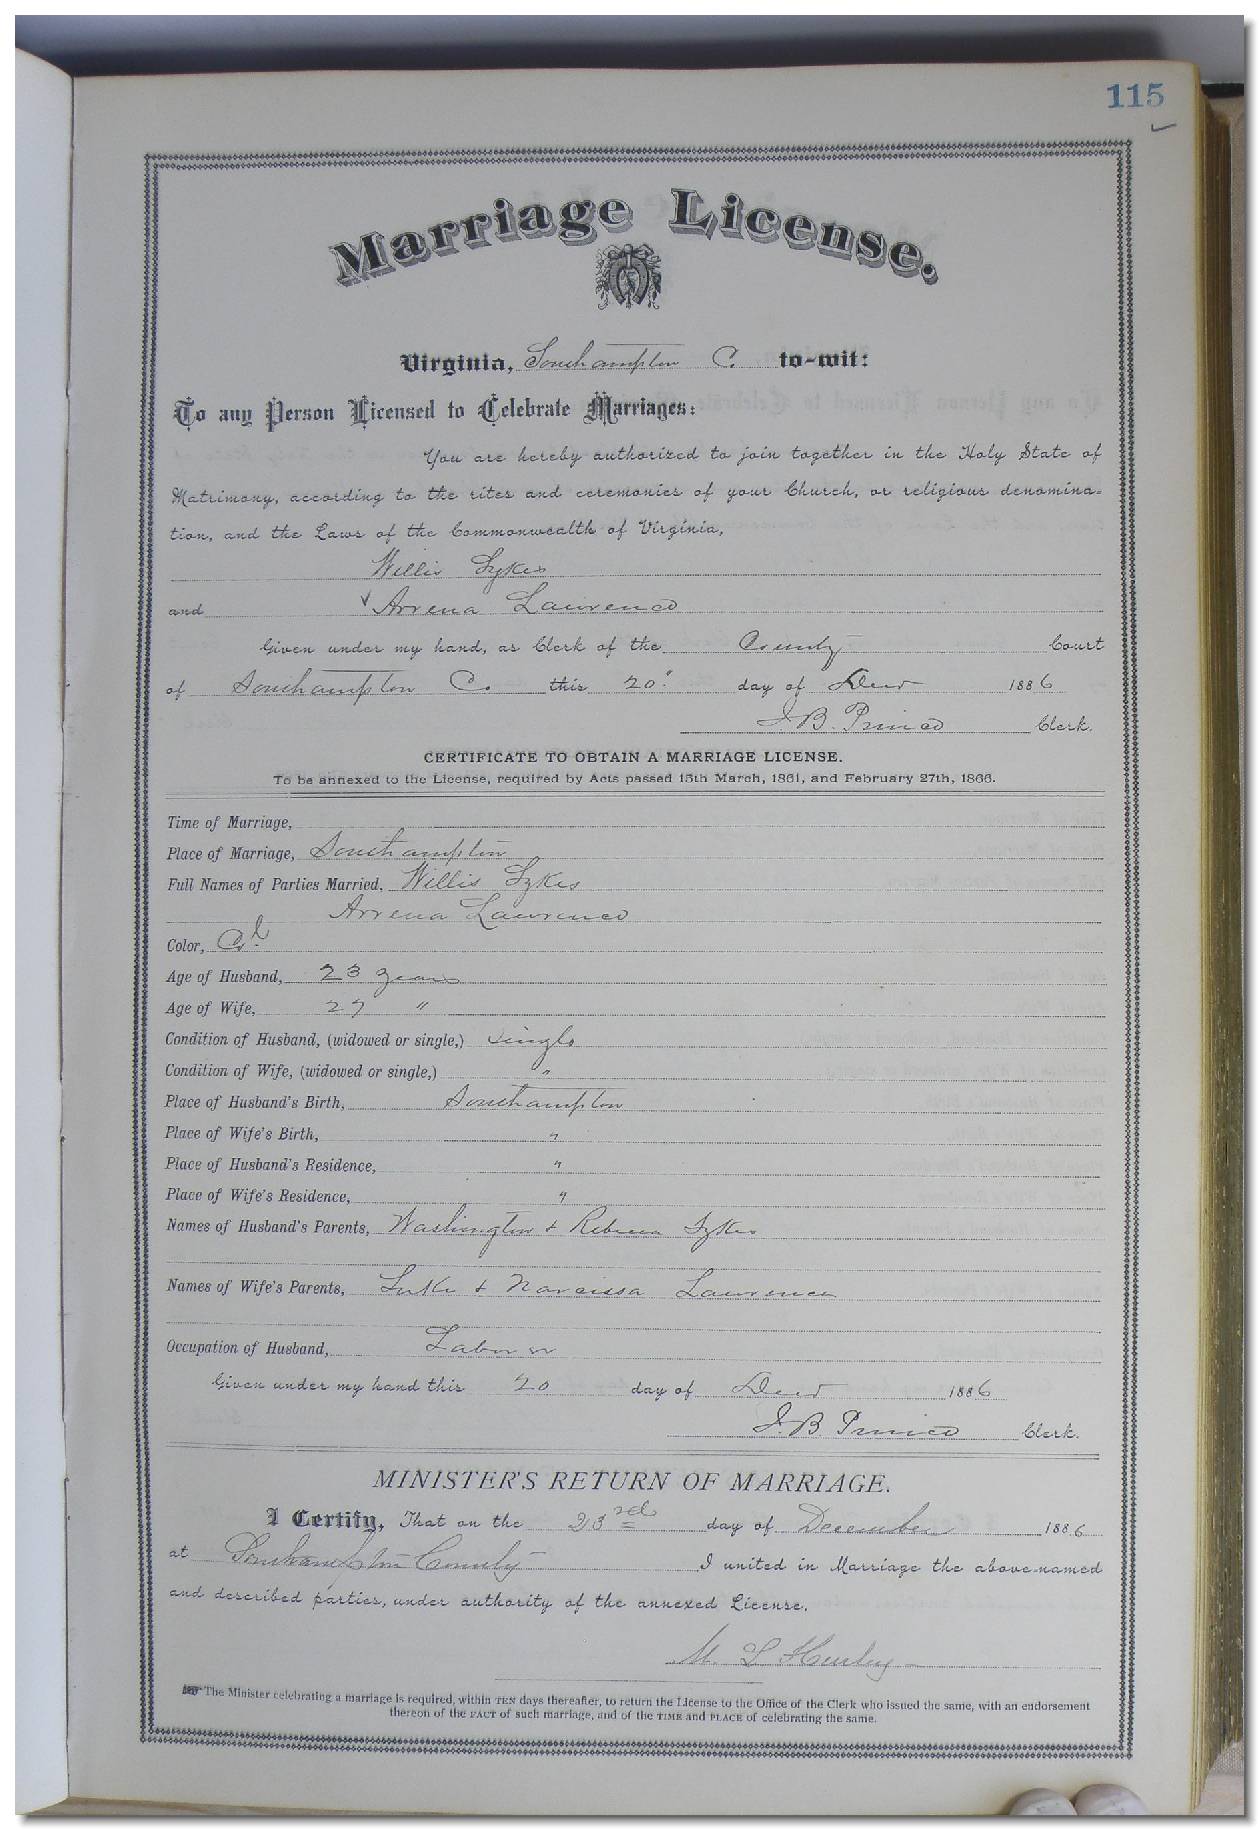 115
Marriage License.
Virginia, Southampton C. to-wit:
To any Person Licensed to Celebrate Marriages:
You are hereby authorized to join together in the Holy State of
Matrimony, according to the rites and ceremonies of your Church, or religious denomina-
tion, and the Laws of the Commonwealth of Virginia,
Willis Sykes
and Arrena Lawrence
Given under my hand, as Clerk of the County Court
of Southampton Co this 20" day of Decr 1886
J. B. Prince Clerk.
CERTIFICATE TO OBTAIN A MARRIAGE LICENSE.
To be annexed to the License, required by Acts passed 15th March, 1861, and February 27th, 1866.
Time of Marriage,
Place of Marriage, Southampton
Full Names of Parties Married, Willis Sykes
Arrena Lawrence
Color, Cold
Age of Husband, 23 years
Age of Wife, 27 "
Condition of Husband, (widowed or single,) single
Condition of Wife, (widowed or single,) "
Place of Husband's Birth, Southampton
Place of Wife's Birth, "
Place of Husband's Residence, "
Place of Wife's Residence, "
Names of Husband's Parents, Washington + Rebecca Sykes
Names of Wife's Parents, Luke + Narcissa Lawrence
Occupation of Husband, Laborer
Given under my hand this 20 day of Decr 1886
J. B. Prince Clerk.
MINISTER'S RETURN OF MARRIAGE.
I Certify, That on the 23rd day of December 1886
at Southampton County I united in Marriage the above-named
and described parties, under authority of the annexed License.
M. L. Hurley
The Minister celebrating a marriage is required, within TEN days thereafter, to return the License to the Office of the Clerk who issued the same, with an endorsement
thereon of the FACT of such marriage, and of the TIME and PLACE of celebrating the same.